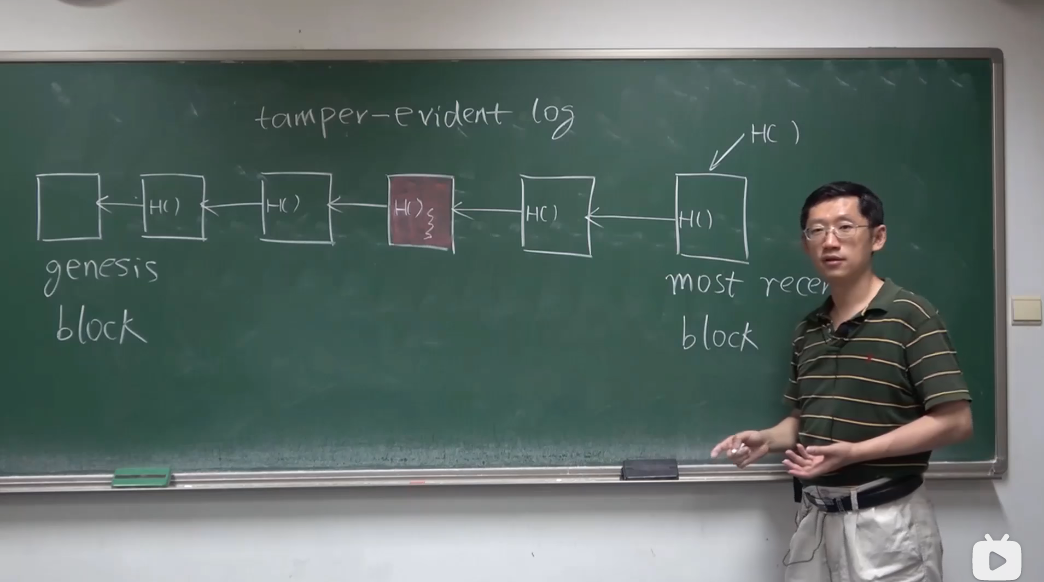 tamper-evident log
H( )
H( ) H( ) H( ) H( ) H( )
genesis
block
most recen
block